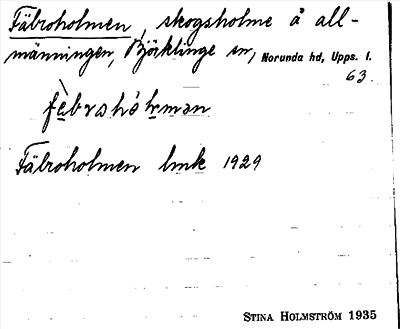 Fäbroholmen, skogsholme å all-
männingen, Björklinge sn, Norunda hd, Upps. l.
63.
fä̀brshòḷmən
Fäbroholmen lmk 1929
STINA HOLMSTRÖM 1935